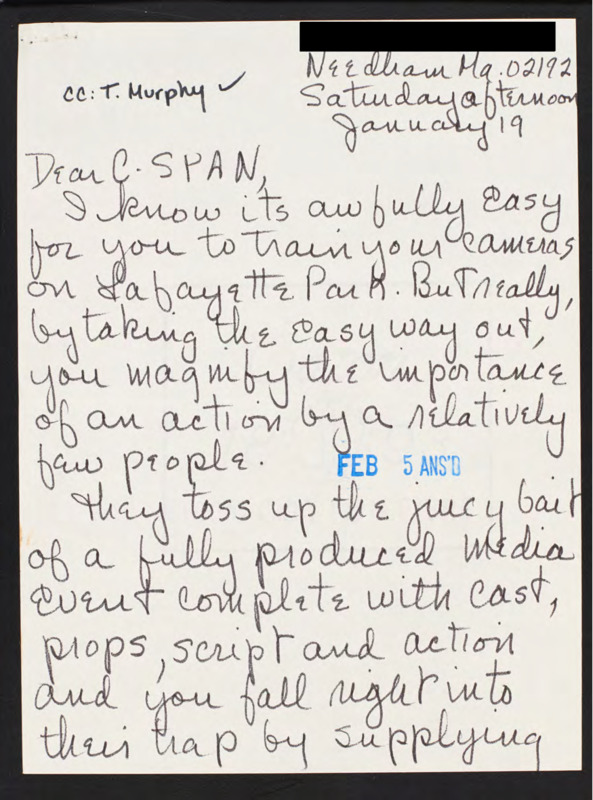 Needham Ma. 02192
cc: T. Murphy ✓
Saturday afternoon
January 19
Dear C-SPAN,
I know its awfully easy
for you to train your cameras
on Lafayette Park. But really,
by taking the easy way out,
you magnify the importance
of an action by a relatively
few people.
FEB 5 ANS'D
They toss up the juicy bait
of a fully produced media
event complete with cast,
props, script and action
and you fall right into
their trap by supplying